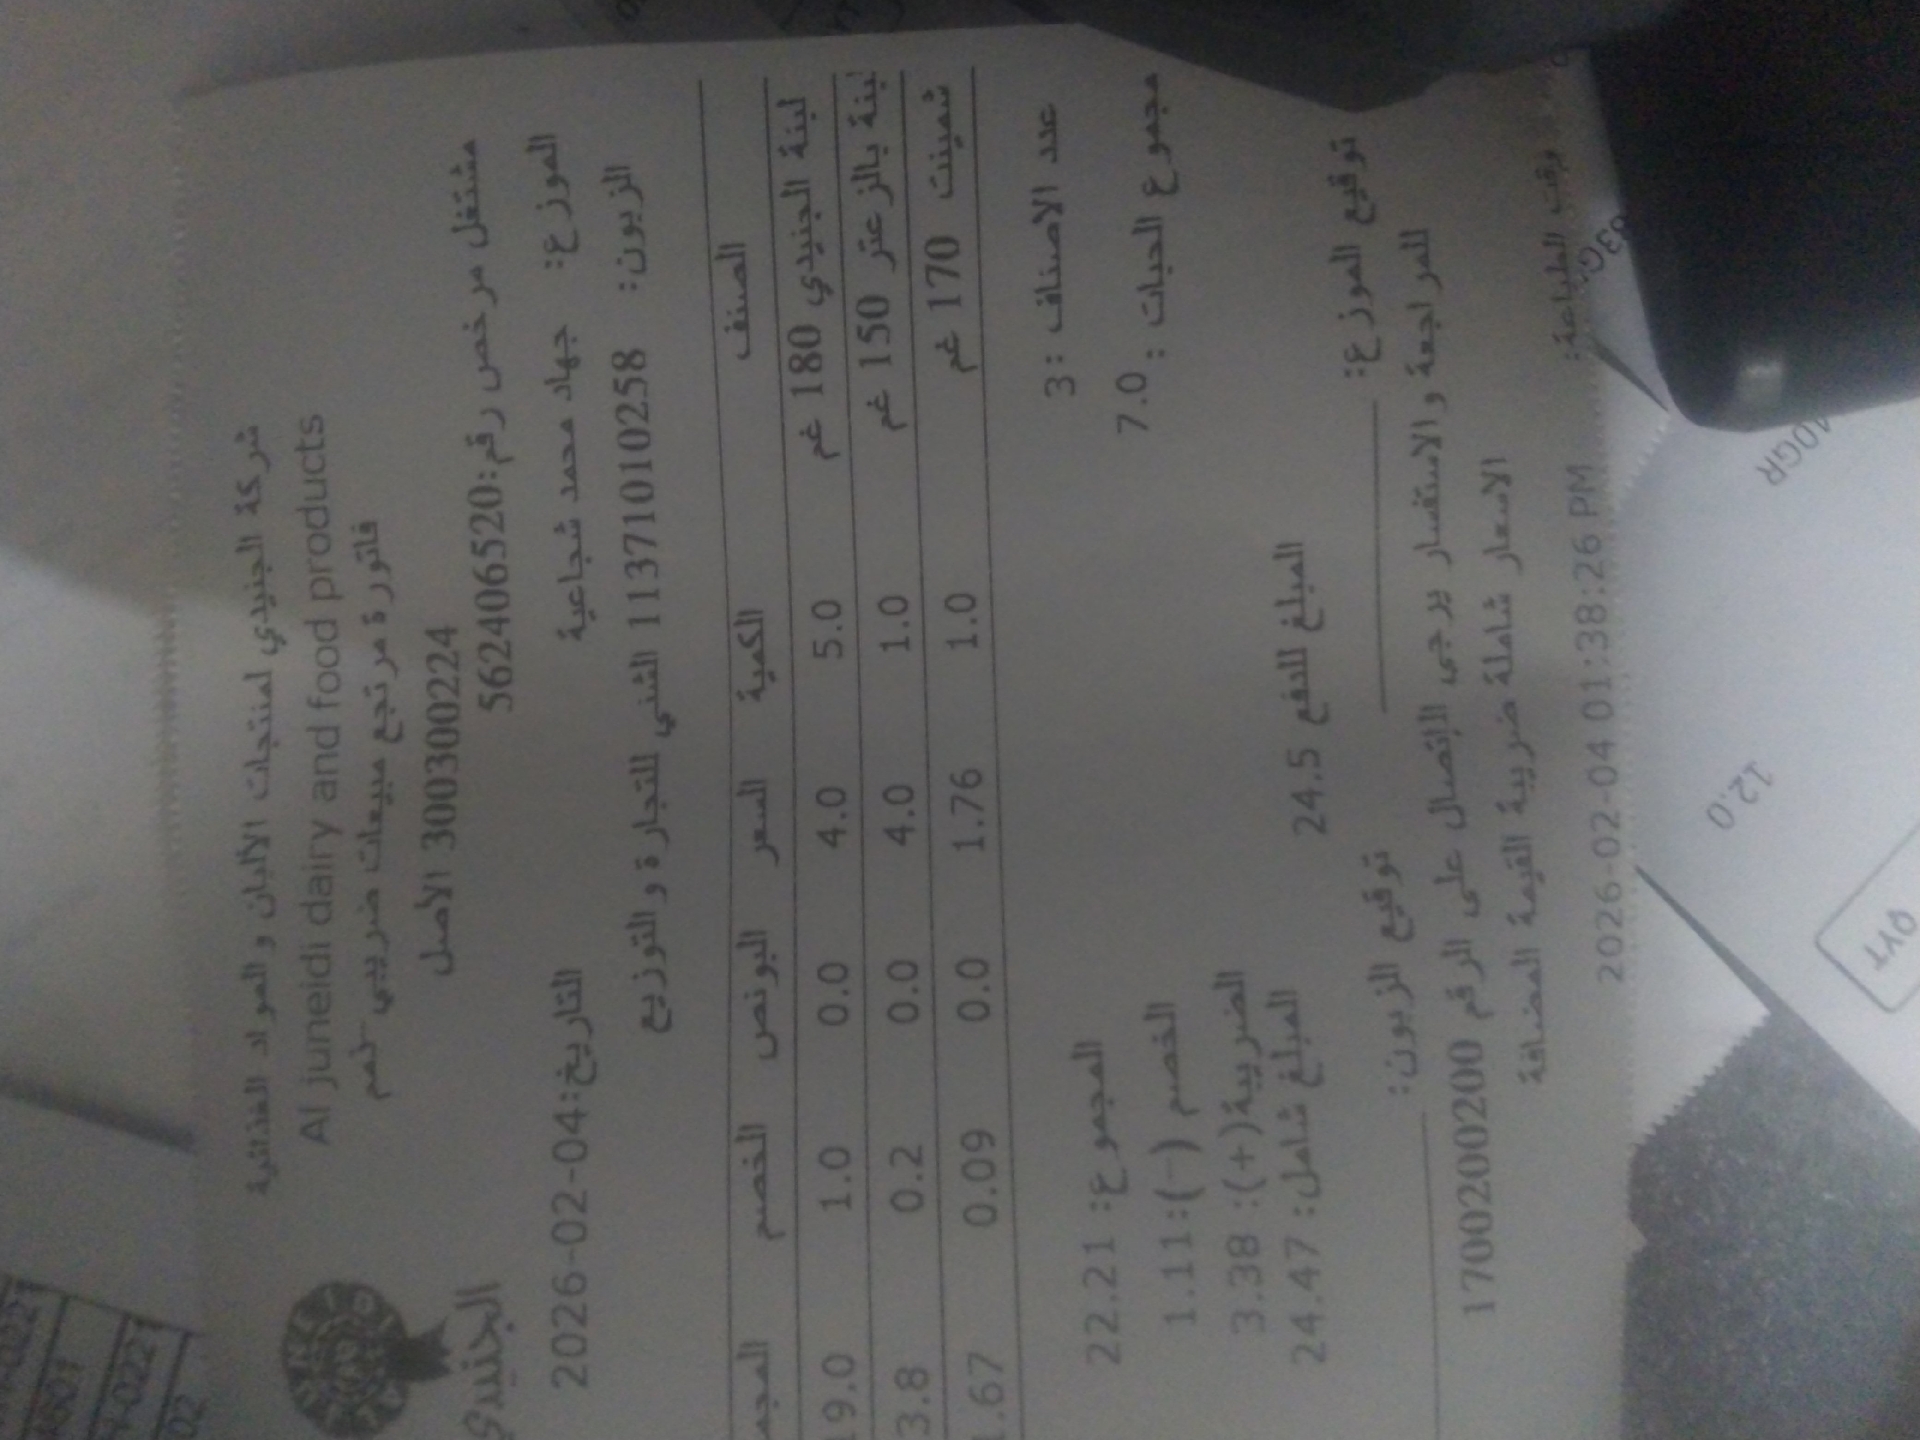 شركة الجنيدي لمنتجات الألبان والمواد الغذائية
Al juneidi dairy and food products
فاتورة مرتجع مبيعات ضريبي خصم
300300224 الأصل
مشتغل مرخص رقم:562406520
الجنيدي
الموزع: جهاد محمد شجاعية
التاريخ:2026-02-04
الزبون: 1137101010258 الشني للتجارة والتوزيع
الصنف الكمية السعر البونص الخصم المجم
لبنة الجنيدي 180 غم 5.0 4.0 0.0 1.0 19.0
لبنة بالزعتر 150 غم 1.0 4.0 0.0 0.2 3.8
شمينت 170 غم 1.0 1.76 0.0 0.09 1.67
عدد الاصناف :3
المجموع: 22.21
مجموع الحبات : 7.0
الخصم (-):1.11
الضريبة(+): 3.38
المبلغ للدفع 24.5
المبلغ شامل: 24.47
توقيع الموزع:
توقيع الزبون:
للمراجعة والاستفسار يرجى الإتصال على الرقم 1700200200
الاسعار شاملة ضريبة القيمة المضافة
وقت الطباعة: 2026-02-04 01:38:26 PM
12.0
QYT